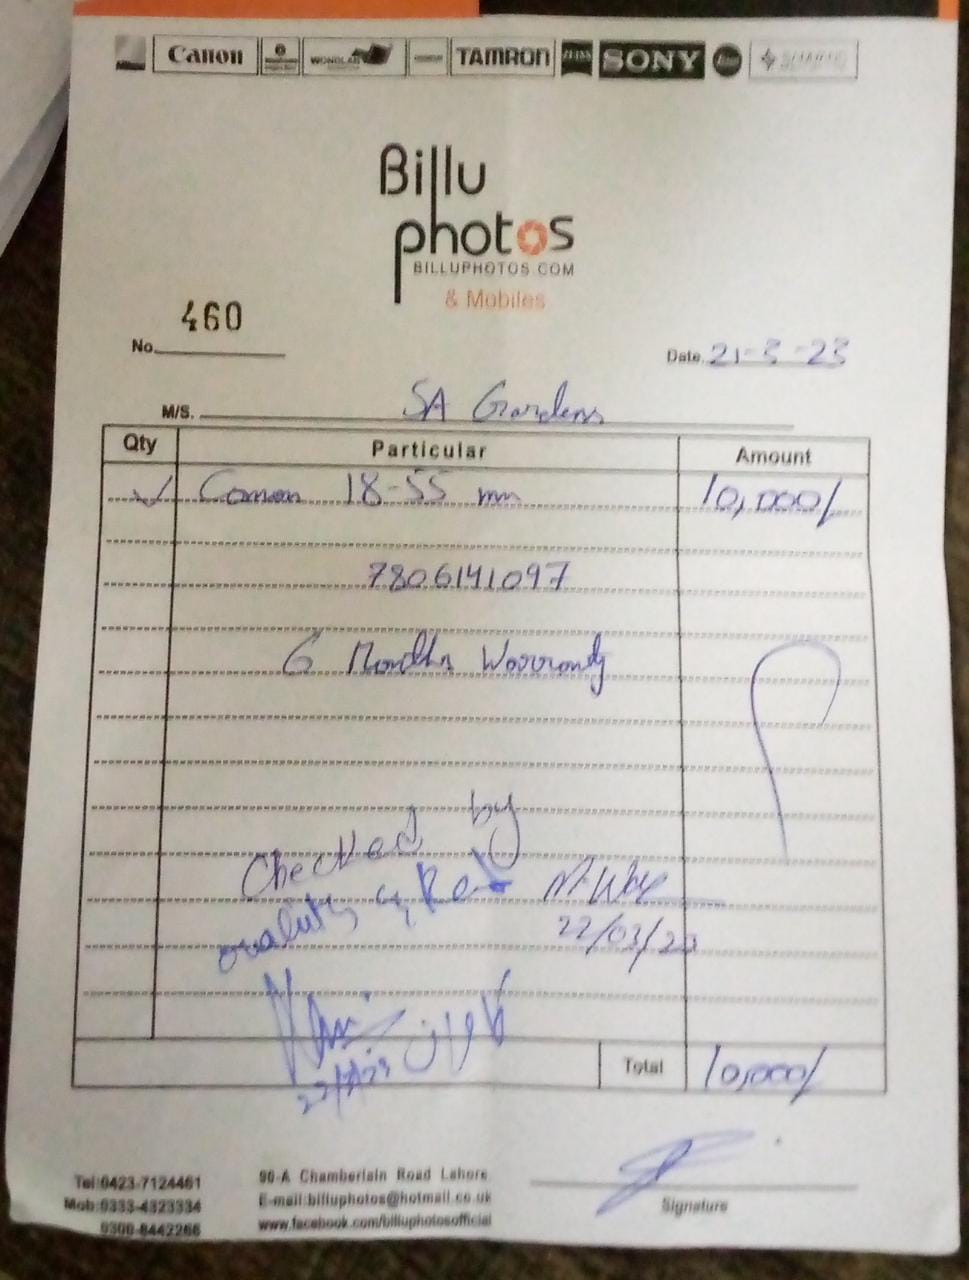 Canon
TAMRON
ZEISS
SONY
Billu
photos
BILLUPHOTOS.COM
& Mobiles
460
No.
Date. 21-3-23
M/S. SA Gardens
Qty Particular Amount
Canon 18-55 mm 10,000/
7806141097
6 Months Warranty
Checked by
quality & Rate
22/03/23
Total 10,000/
Tel:0423-7124461
Mob:0333-4323334
0300-8442266
90-A Chamberlain Road Lahore.
E-mail:billuphotos@hotmail.co.uk
www.facebook.com/billuphotosofficial
Signature